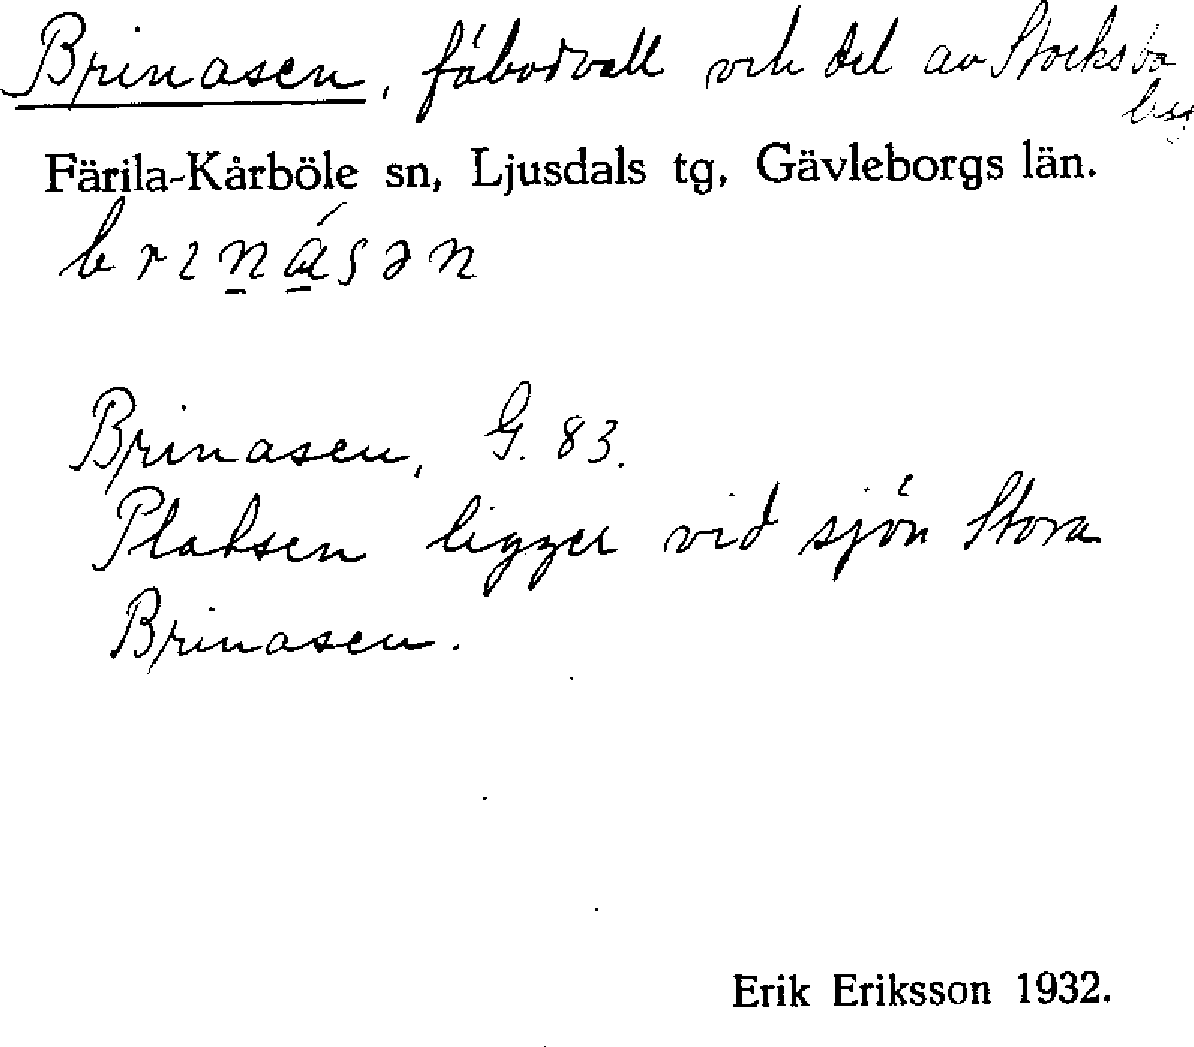 Brinasen, fäbodvall och del av Stocksbo
by
Färila-Kårböle sn, Ljusdals tg, Gävleborgs län.
Brinasen, G. 83.
Platsen ligger vid sjön Stora
Brinasen.
Erik Eriksson 1932.